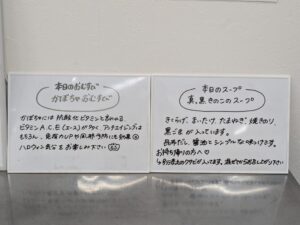 本日のおむすび
かぼちゃおむすび
かぼちゃには抗酸化ビタミンと言われる
ビタミンA.C.E(エース)が多く アンチエイジングは
もちろん、免疫力UPや風邪予防にも効果
ハロウィン気分をお楽しみ下さい
本日のスープ
真、黒きのこのスープ
きくらげ、まいたけ、たまねぎ、焼きのり、
黒ごまが入ってます。
昆布だし、醤油とシンプルな味つけです。
お持ち帰りの方へ♡